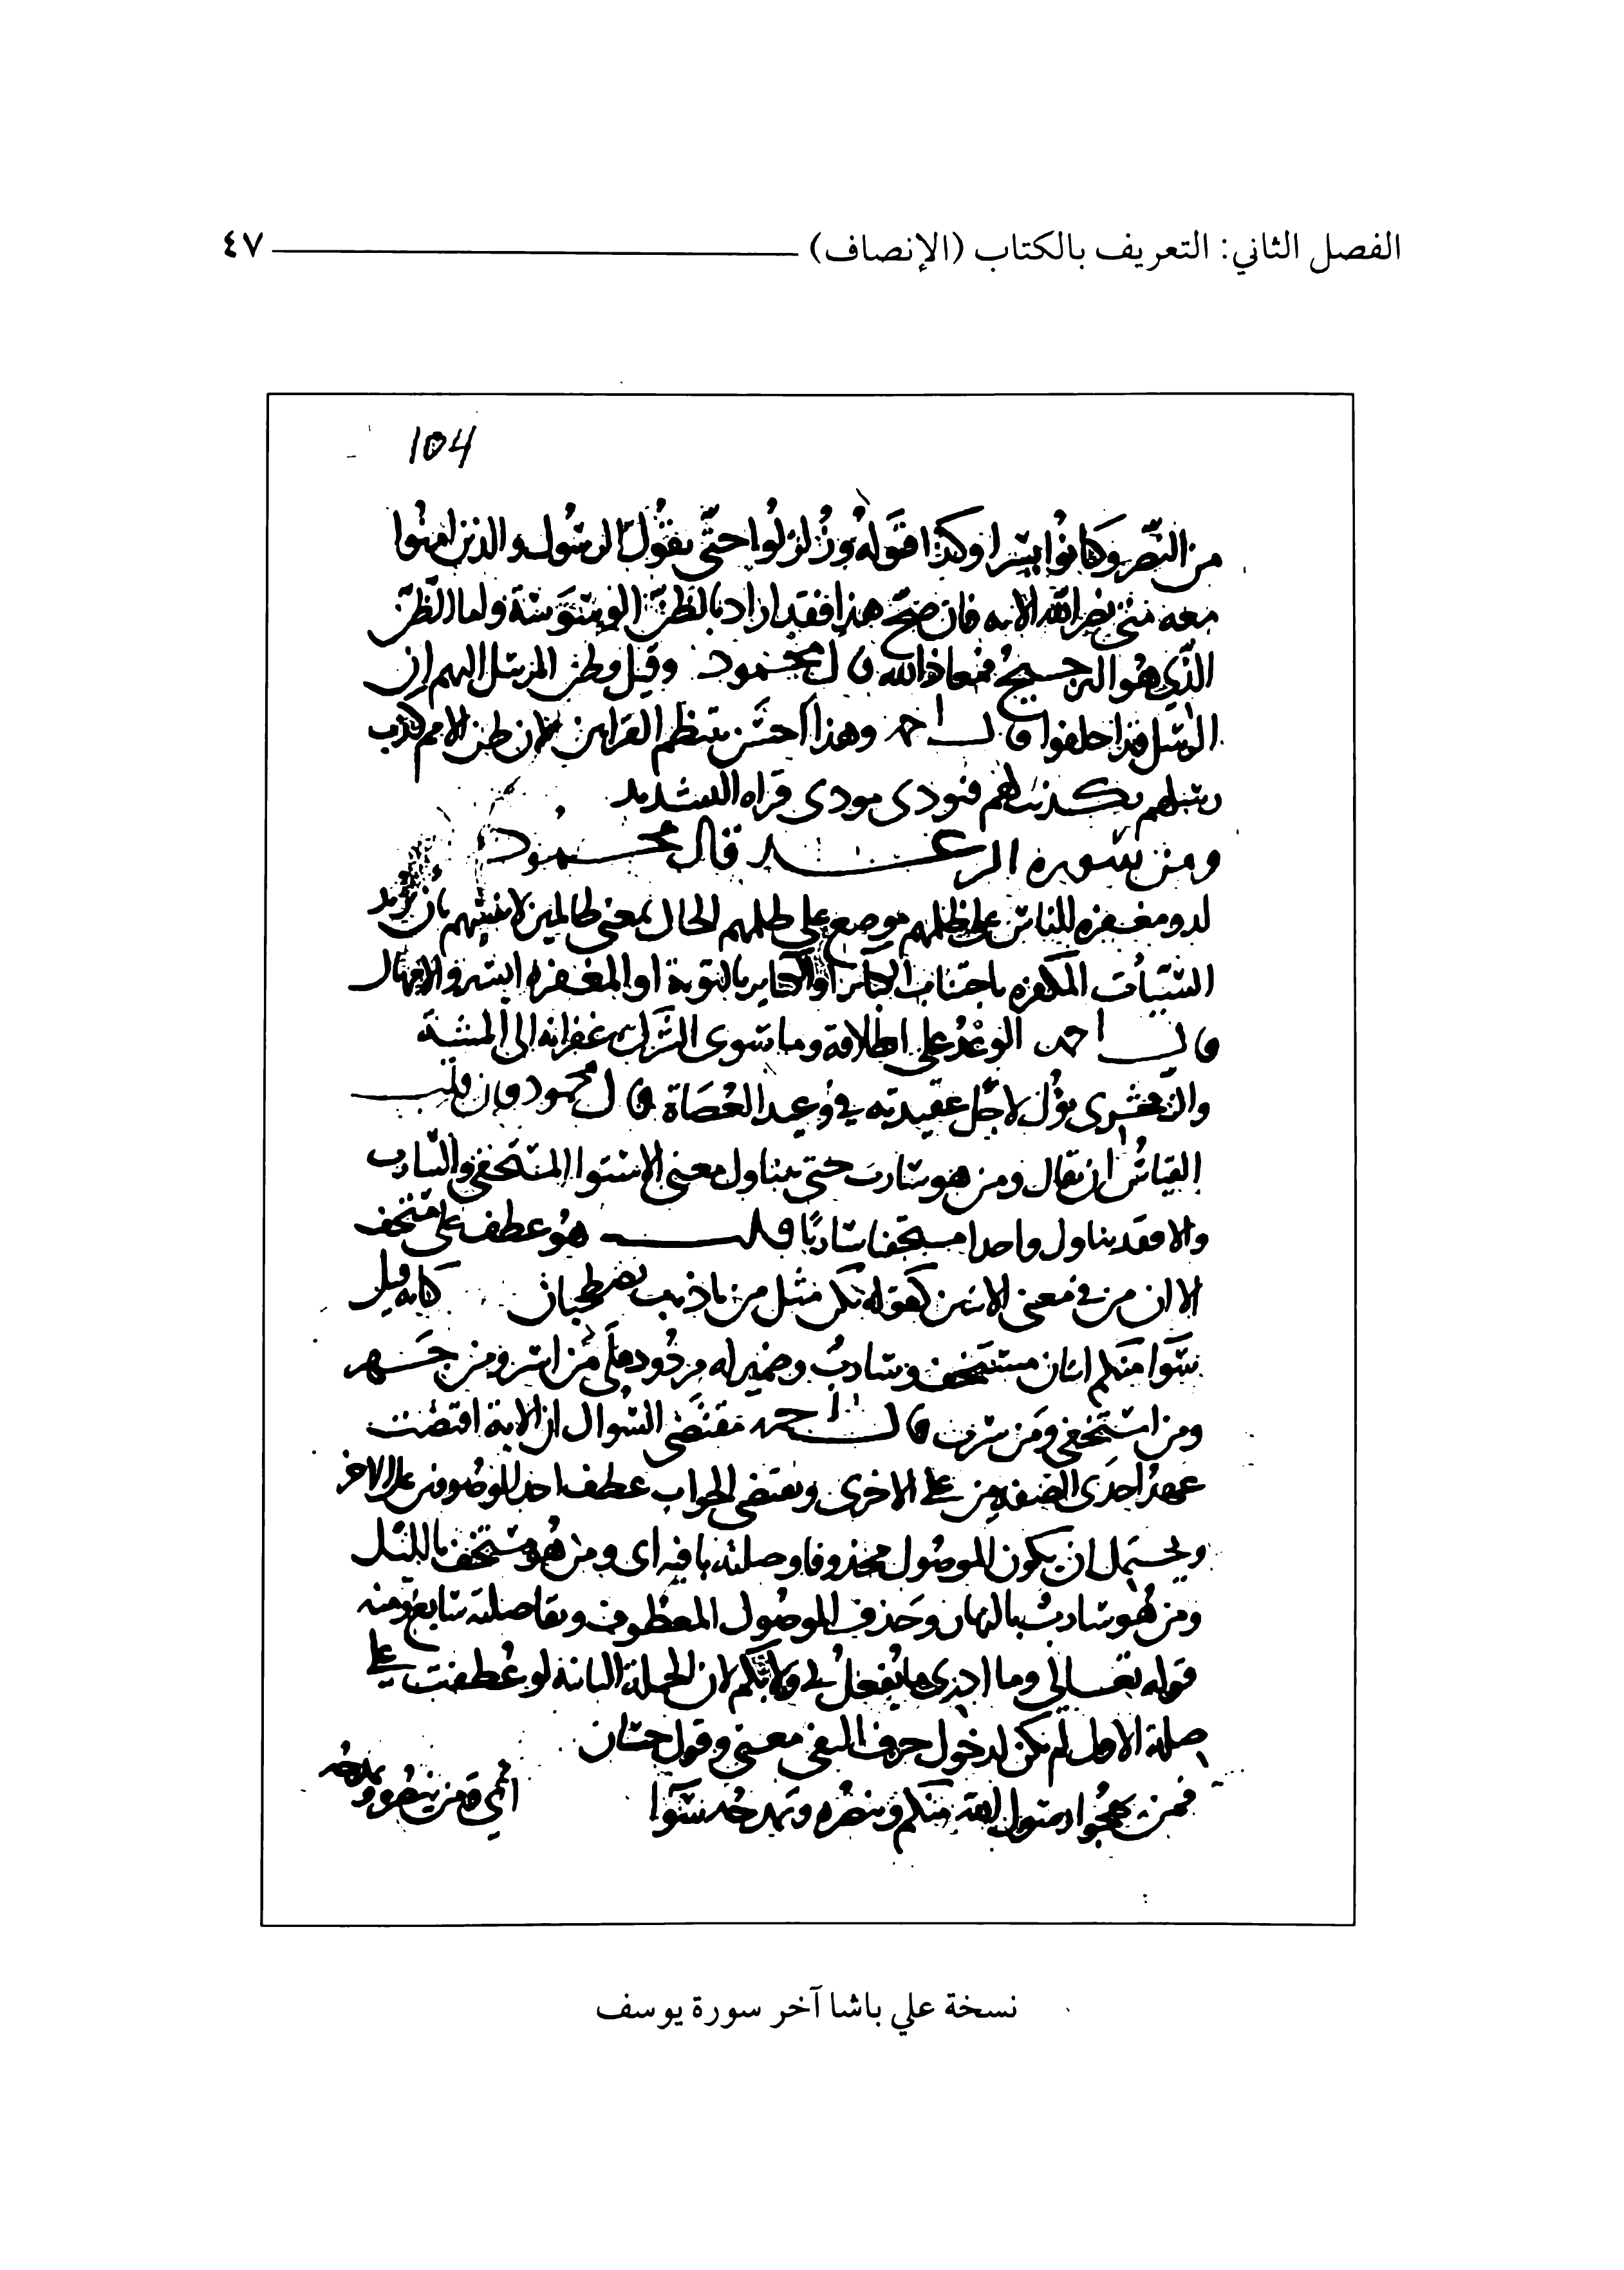 الفصل الثاني: التعريف بالكتاب (الإنصاف) ٤٧
104
من النصر وكانوا بشرا وكذا قوله وزلزلوا حتى يقول الرسول والذين امنوا
معه متى نصر الله الايه فان صح هذا فقد اراد بالظن الوسوسة واما الظن
الذي هو الترجيح فمعاذ الله قال محمود وقيل وظن المرسل اليهم ان
الرسل قد اخلفوا قال احمد وهذا احسن لان ظن الامم كذب
رسلهم تكذيبا لهم فتودى مودى قراه التشديد
ومن سوره الرعد قال محمود
لذو مغفره للناس على ظلمهم موضع على ظلمهم الحال بمعنى ظالمين لانفسهم بان يريد
السيئات المكفره باجتناب الكبائر او الكباير بالتوبة او المغفره الستر والامهال
قال احمد الوعد على اطلاقه وما سوى الشرك غفرانه الى المشيئة
والزمخشرى يؤل لاجل عقيدته في وعيد العصاة قال محمود فان قلت
القياس ان يقال ومن هو سارب حتى يتناول معنى الاستوا المستخفي والسارب
والا فقد يتناول واحدا مستخفيا ساربا قلت هو عطف على مستخف
الا ان من في معنى الاثنين كقوله نكن مثل من يا ذيب يصطحبان كانه قيل
سوا منكم اثنان مستخف وسارب وضمير له مردود على من اسر ومن جهر
ومن استخفي ومن سرب قال احمد مقتضى السوال ان الاية اقتضت
احدى الصفتين على الاخرى ومقتضى الجواب عطف احد الموصوفين على الاخر
ويحتمل ان يكون الموصول محذوفا وصلته باقيه اى ومن هو مستخف بالليل
ومن هو سارب بالنهار وحذف الموصول المعطوف وبقا صلته سايغ ومنه
قوله تعالى وما ادرى ما يفعل بي ولا بكم لان الجملة الثانية لو عطفت على
صلة الاول لم يكن لدخول حرف النفي معنى وقول حسان
فمن يهجوا رسول الله منكم وينصره ويمدحه سوا اي ومن ينصره ويمدحه
نسخة علي باشا آخر سورة يوسف